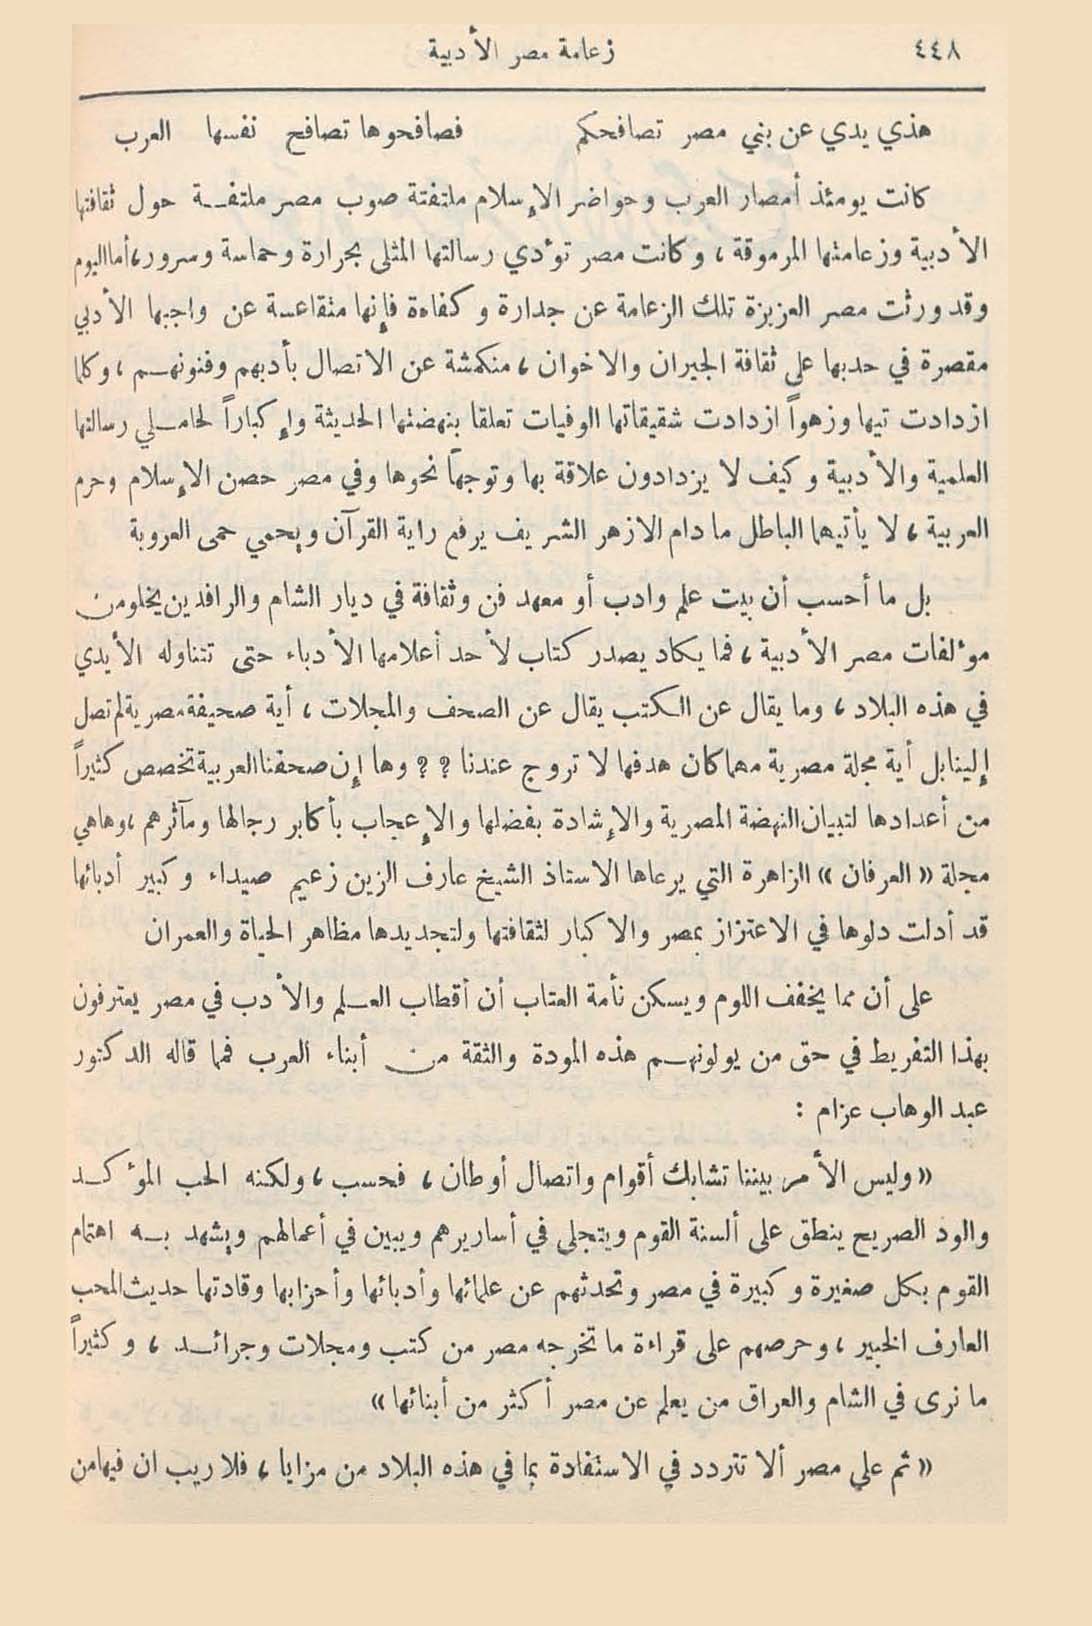 ٤٤٨ زعامة مصر الأدبية
هذي يدي عن بني مصر تصافحكم فصافحوها تصافح نفسها العرب
كانت يومئذ أمصار العرب وحواضر الإسلام ملتفتة صوب مصر ملتفـة حول ثقافتها
الأدبية وزعامتها المرموقة ، وكانت مصر تؤدي رسالتها المثلى بجرارة وحماسة وسرور ، أما اليوم
وقد ورثت مصر العزيزة تلك الزعامة عن جدارة وكفاءة فإنها متقاعسة عن واجبها الأدبي
مقصرة في حدبها على ثقافة الجيران والاخوان ، منكمشة عن الاتصال بأدبهم وفنونهـم ، وكلما
ازدادت تيها وزهواً ازدادت شقيقاتها الوفيات تعلقا بنهضتها الحديثة وإكباراً لحامـلي رسالتها
العلمية والأدبية وكيف لا يزدادون علاقة بها وتوجهاً نحوها وفي مصر حصن الإسلام وحرم
العربية ، لا يأتيهما الباطل ما دام الازهر الشريف يرفع راية القرآن ويحمي حمى العروبة
بل ما أحسب أن بيت علم وادب أو معهد فن وثقافة في ديار الشام والرافدين يخلو من
مؤلفات مصر الأدبية ، فما يكاد يصدر كتاب لأحد أعلامها الأدباء حتى تتناوله الأيدي
في هذه البلاد ، وما يقال عن الكتب يقال عن الصحف والمجلات ، أية صحيفة مصرية لم تصل
إلينا بل أية مجلة مصرية مهما كان هدفها لا تروج عندنا ؟ ؟ وها إن صحفنا العربية تخصص كثيراً
من أعدادها لتبيان النهضة المصرية والإشادة بفضلها والإعجاب بأكابر رجالها ومآثرهم ، وها هي
مجلة « العرفان » الزاهرة التي يرعاها الاستاذ الشيخ عارف الزين زعيم صيداء وكبير أدبائها
قد أدلت دلوها في الاعتزاز بمصر والاكبار لثقافتها ولتجديدها مظاهر الحياة والعمران
على أن مما يخفف اللوم ويسكن نأمة العتاب أن أقطاب العـلم والأدب في مصر يعترفون
بهذا التفريط في حق من يولونهـم هذه المودة والثقة من أبناء العرب فمما قاله الدكتور
عبد الوهاب عزام :
« وليس الأمر بيننا تشابك أقوام واتصال أوطان ، فحسب ، ولكنه الحب المؤكـد
والود الصريح ينطق على ألسنة القوم ويتجلى في أساريرهم ويبين في أعمالهم ويشهد بـه اهتمام
القوم بكل صغيرة وكبيرة في مصر وتحدثهم عن علمائها وأدبائها وأحزابها وقادتها حديث المحب
العارف الخبير ، وحرصهم على قراءة ما تخرجه مصر من كتب ومجلات وجرائـد ، وكثيراً
ما نرى في الشام والعراق من يعلم عن مصر أكثر من أبنائها »
« ثم على مصر ألا تتردد في الاستفادة بما في هذه البلاد من مزايا ، فلا ريب ان فيها من